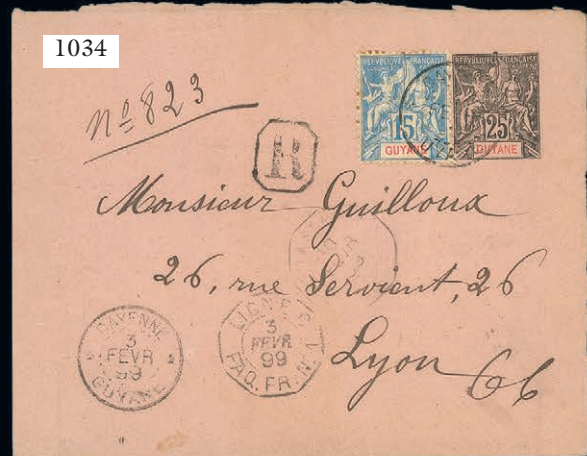 1034
nº 823
REPUBLIQUE FRANÇAISE
15
GUYANE
REPUBLIQUE FRANÇAISE
25
GUYANE
R
Monsieur Guilloux
26, rue Servient, 26
Lyon
CAYENNE
3
FEVR
99
GUYANE
LIGNE
3
FEVR
99
PAQ. FR. N. 1